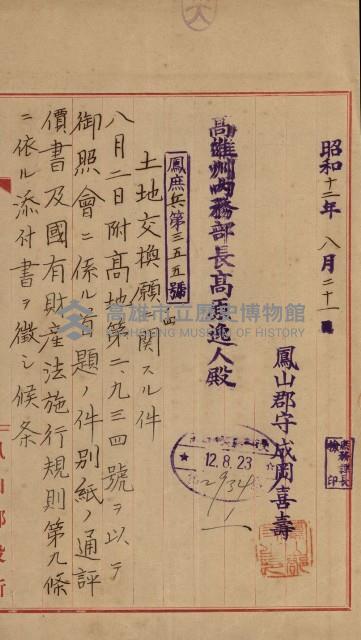 昭和十二年八月二十一日
鳳山郡守成岡喜壽
庶務課長檢印
高雄州內務部長高原逸人殿
鳳庶兵第三五五號
土地交換願ニ關スル件
八月二日附高地第二、九三四號ヲ以テ
御照會ニ係ル首題ノ件別紙ノ通評
價書及國有財產法施行規則第九條
ニ依ル添付書ヲ徵シ候条
12.8.23
2934
高雄市立歷史博物館
KAOHSIUNG MUSEUM OF HISTORY